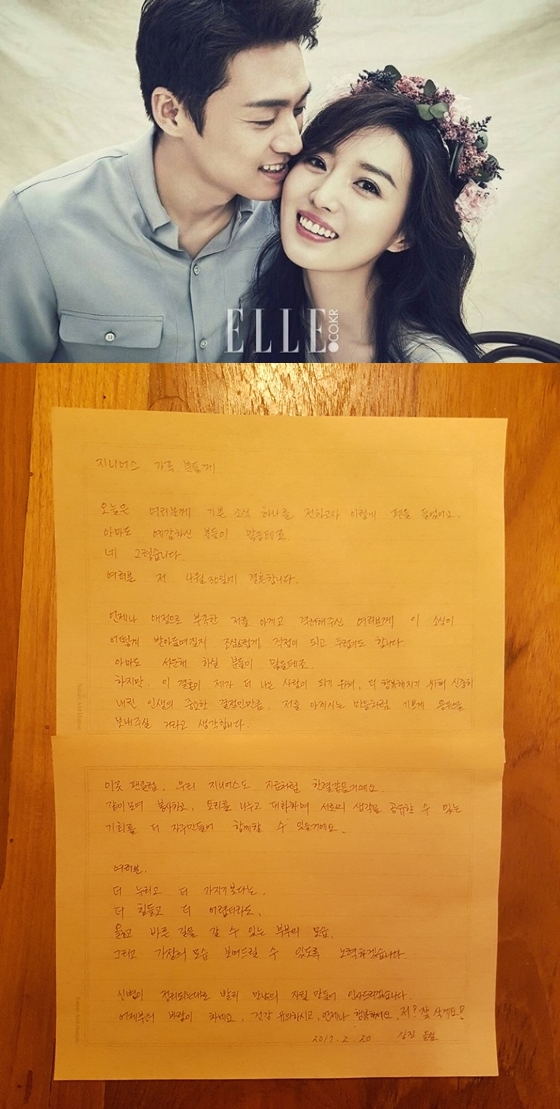 ELLE.CO.KR
지니어스 가족 분들께
오늘은 여러분께 기쁜 소식 하나를 전하고자 이렇게 펜을 들었어요.
아마도 예감하신 분들이 많을텐데요
네 그렇습니다
여러분 저 사월 30일에 결혼합니다.
언제나 애정으로 부족한 저를 아끼고 격려해주신 여러분께 이 소식이
어떻게 받아들여질지 조심스럽게 걱정이 되고 두렵기도 합니다
아마도 서운해 하실 분들이 많을텐데요.
하지만, 이 결혼이 제가 더 나은 사람이 되기 위해, 더 행복해지기 위해 신중히
내린 인생의 중요한 결정인만큼 저를 아끼시는 마음처럼 기쁘게 응원을
보내주실 거라고 생각합니다.
이곳 팬클럽, 우리 지니어스도 지금처럼 한결같을거예요
같이 모여 봉사하고, 요리를 나누고 대화하며 서로의 생각을 공유할 수 있는
기회를 더 자주만들어 함께할 수 있을거예요.
여러분.
더 누리고 더 가지기보다는,
더 힘들고 더 어렵더라도,
옳고 바른 길을 갈 수 있는 부부의 모습,
그리고 가장의 모습 보여드릴 수 있도록 노력하겠습니다
신변이 정리되는대로 빨리 만남의 자리 만들어 인사드리겠습니다.
바람이 차네요, 건강 유의하시고, 언제나 행복하세요, 저? 잘 살게요!
2017. 2. 20